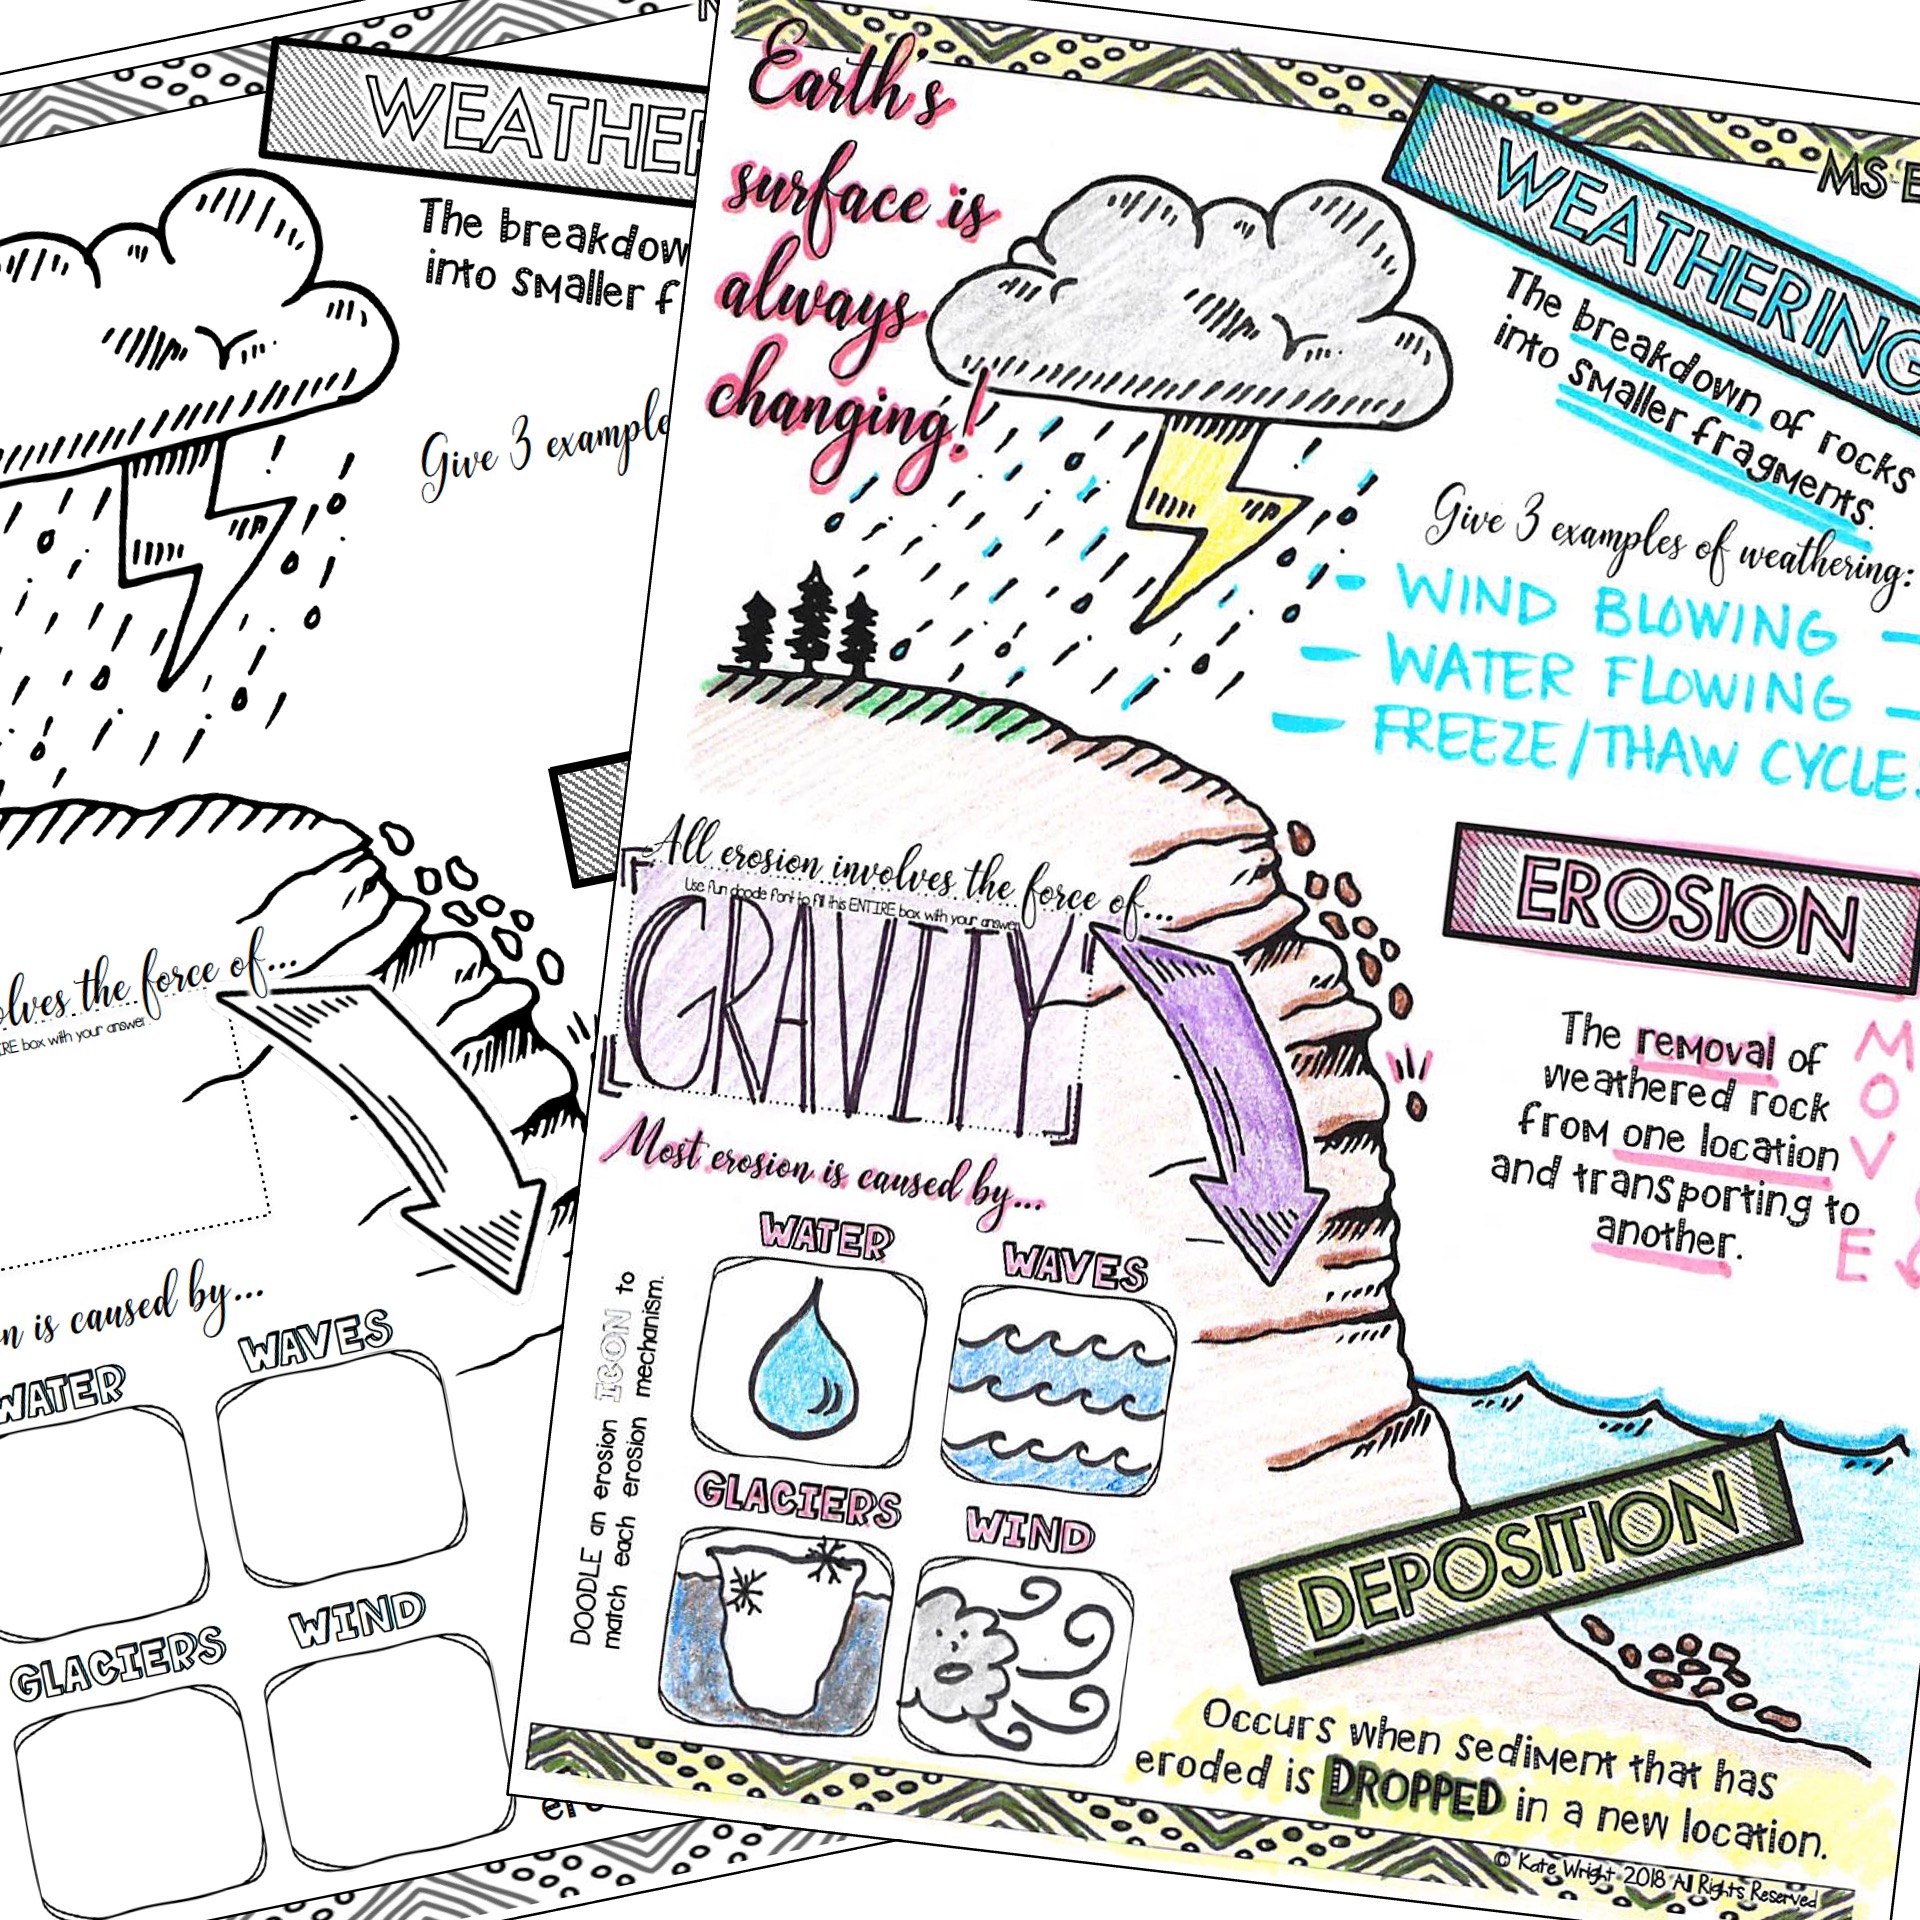 WEATHER
The breakdow
into smaller f
Give 3 example
olves the force of...
IRE box with your answer.
n is caused by...
WATER
WAVES
GLACIERS
WIND
Earth's
surface is
always
changing!
MS E
WEATHERING
The breakdown of rocks
into smaller fragments.
Give 3 examples of weathering:
- WIND BLOWING -
- WATER FLOWING -
- FREEZE/THAW CYCLES
All erosion involves the force of...
Use fun doodle font to fill this ENTIRE box with your answer.
GRAVITY
EROSION
The removal of
weathered rock
from one location
and transporting to
another.
MOVE
Most erosion is caused by...
WATER
WAVES
GLACIERS
WIND
DOODLE an erosion ICON to
match each erosion mechanism.
DEPOSITION
Occurs when sediment that has
eroded is DROPPED in a new location.
© Kate Wright 2018 All Rights Reserved